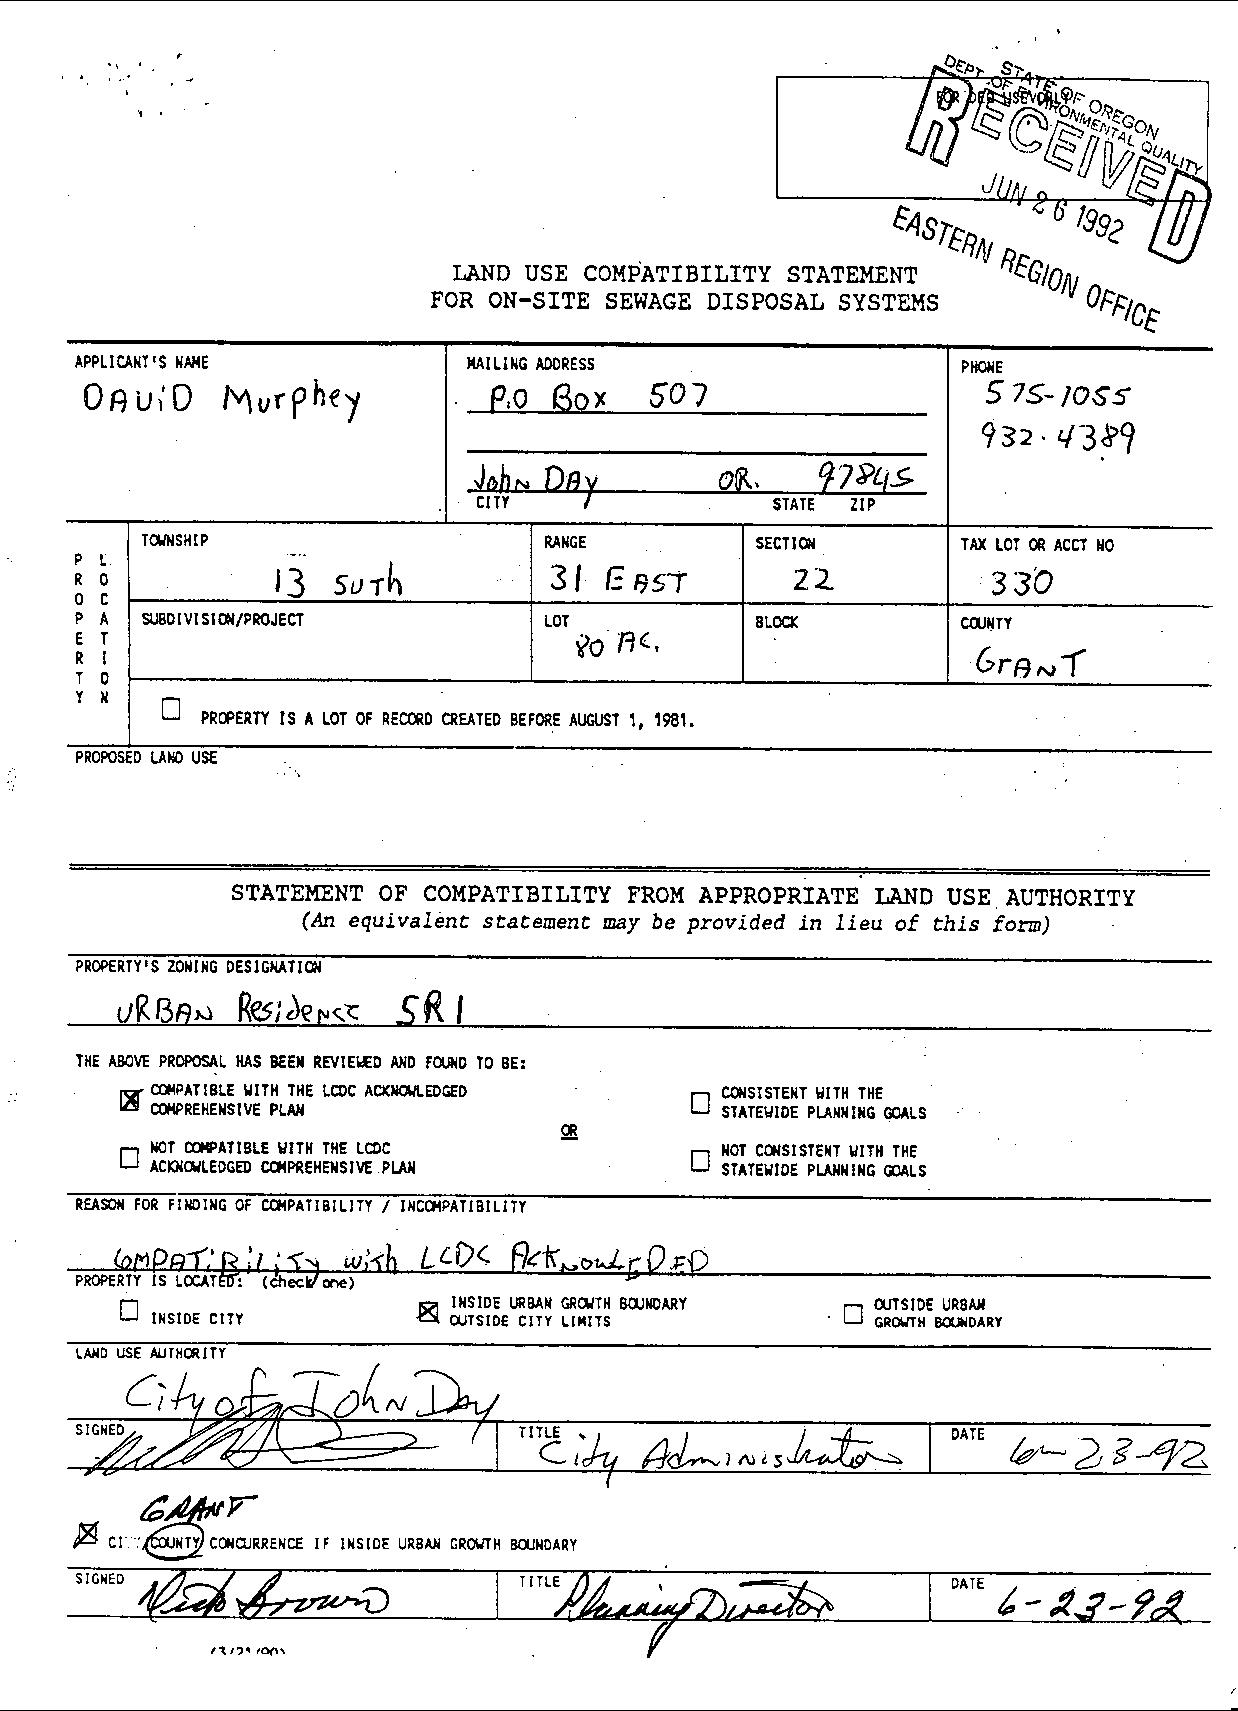 STATE OF OREGON
DEPT. OF ENVIRONMENTAL QUALITY
FOR DEQ USE ONLY
RECEIVED
JUN 26 1992
EASTERN REGION OFFICE
LAND USE COMPATIBILITY STATEMENT
FOR ON-SITE SEWAGE DISPOSAL SYSTEMS
APPLICANT'S NAME MAILING ADDRESS PHONE
DAViD Murphey P.O Box 507 575-1055
932-4389
John DAy OR. 97845
CITY STATE ZIP
PROPERTY LOCATION
TOWNSHIP RANGE SECTION TAX LOT OR ACCT NO
13 SuTh 31 EAST 22 330
SUBDIVISION/PROJECT LOT BLOCK COUNTY
80 AC. GrANT
PROPERTY IS A LOT OF RECORD CREATED BEFORE AUGUST 1, 1981.
PROPOSED LAND USE
STATEMENT OF COMPATIBILITY FROM APPROPRIATE LAND USE AUTHORITY
(An equivalent statement may be provided in lieu of this form)
PROPERTY'S ZONING DESIGNATION
URBAN Residence SR1
THE ABOVE PROPOSAL HAS BEEN REVIEWED AND FOUND TO BE:
COMPATIBLE WITH THE LCDC ACKNOWLEDGED CONSISTENT WITH THE
COMPREHENSIVE PLAN STATEWIDE PLANNING GOALS
OR
NOT COMPATIBLE WITH THE LCDC NOT CONSISTENT WITH THE
ACKNOWLEDGED COMPREHENSIVE PLAN STATEWIDE PLANNING GOALS
REASON FOR FINDING OF COMPATIBILITY / INCOMPATIBILITY
COMPATiBiLiTy with LCDC AcKNowLEDED
PROPERTY IS LOCATED: (check one)
INSIDE CITY INSIDE URBAN GROWTH BOUNDARY OUTSIDE URBAN
OUTSIDE CITY LIMITS GROWTH BOUNDARY
LAND USE AUTHORITY
City of John Day
SIGNED TITLE City Administrator DATE 6-23-92
GRANT
COUNTY CONCURRENCE IF INSIDE URBAN GROWTH BOUNDARY
SIGNED Dick Brown TITLE Planning Director DATE 6-23-92